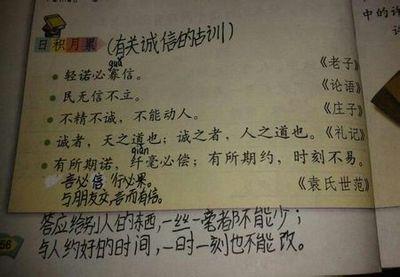 中的许
日积月累 (有关诚信的古训)
guǎ
轻诺必寡信。 《老子》
民无信不立。 《论语》
不精不诚，不能动人。 《庄子》
诚者，天之道也；诚之者，人之道也。 《礼记》
qiān
有所期诺，纤毫必偿；有所期约，时刻不易。
言必信，行必果。 《袁氏世范》
与朋友交，言而有信。
答应给别人的东西，一丝一毫都不能少；
56
与人约好的时间，一时一刻也不能改。